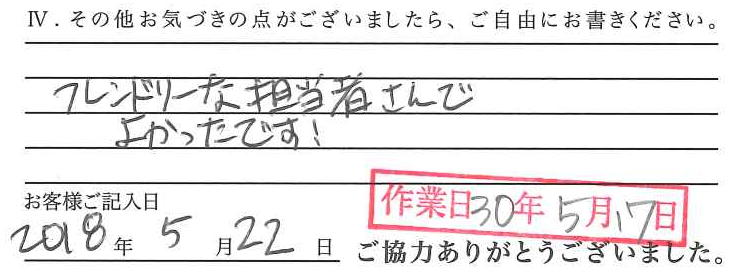 Ⅳ．その他お気づきの点がございましたら、ご自由にお書きください。
フレンドリーな担当者さんで
よかったです！
お客様ご記入日
作業日30年5月17日
2018年5月22日
ご協力ありがとうございました。